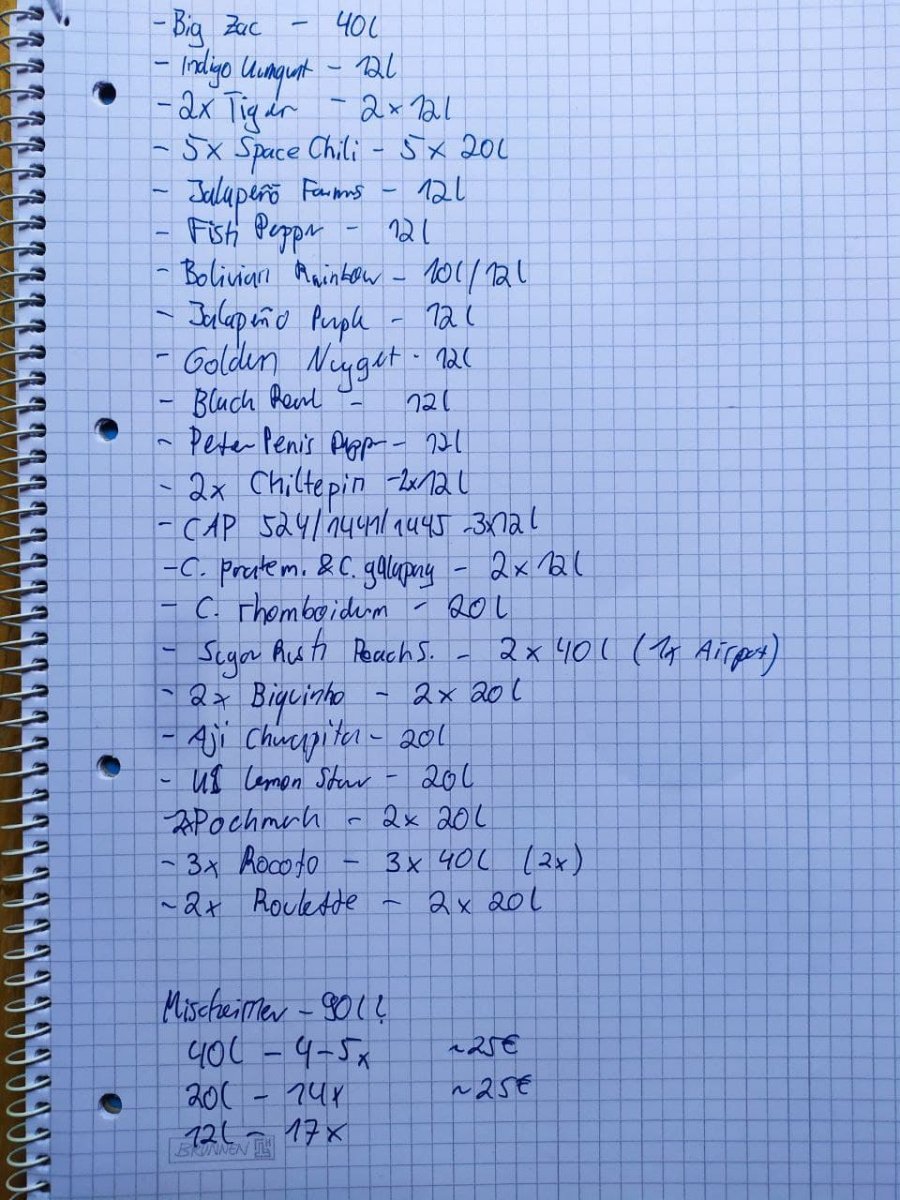 - Big Zac - 40l
- Indigo Kumquat - 12l
- 2x Tiger - 2 x 12l
- 5x Space Chili - 5 x 20l
- Jalapeño Farms - 12l
- Fish Pepper - 12l
- Bolivian Rainbow - 10l/12l
- Jalapeño Purple - 12l
- Golden Nugget - 12l
- Black Pearl - 12l
- Peter Penis Pepper - 12l
- 2x Chiltepin - 2x12l
- CAP 524/1441/1445 - 3x12l
- C. pratem. & C. galapag - 2 x 12l
- C. rhomboidum - 20l
- Sugar Rush Peach S. - 2 x 40l (1x Airpot)
- 2x Biquinho - 2 x 20l
- Aji Charapita - 20l
- Lemon Starr - 20l
- 2x - 2 x 20l
- 3x Rocoto - 3 x 40l (2x)
- 2x Roulette - 2 x 20l
Mischeimer - 90l!
40l - 4-5x ~25€
20l - 14x ~25€
12l - 17x
BRUNNEN